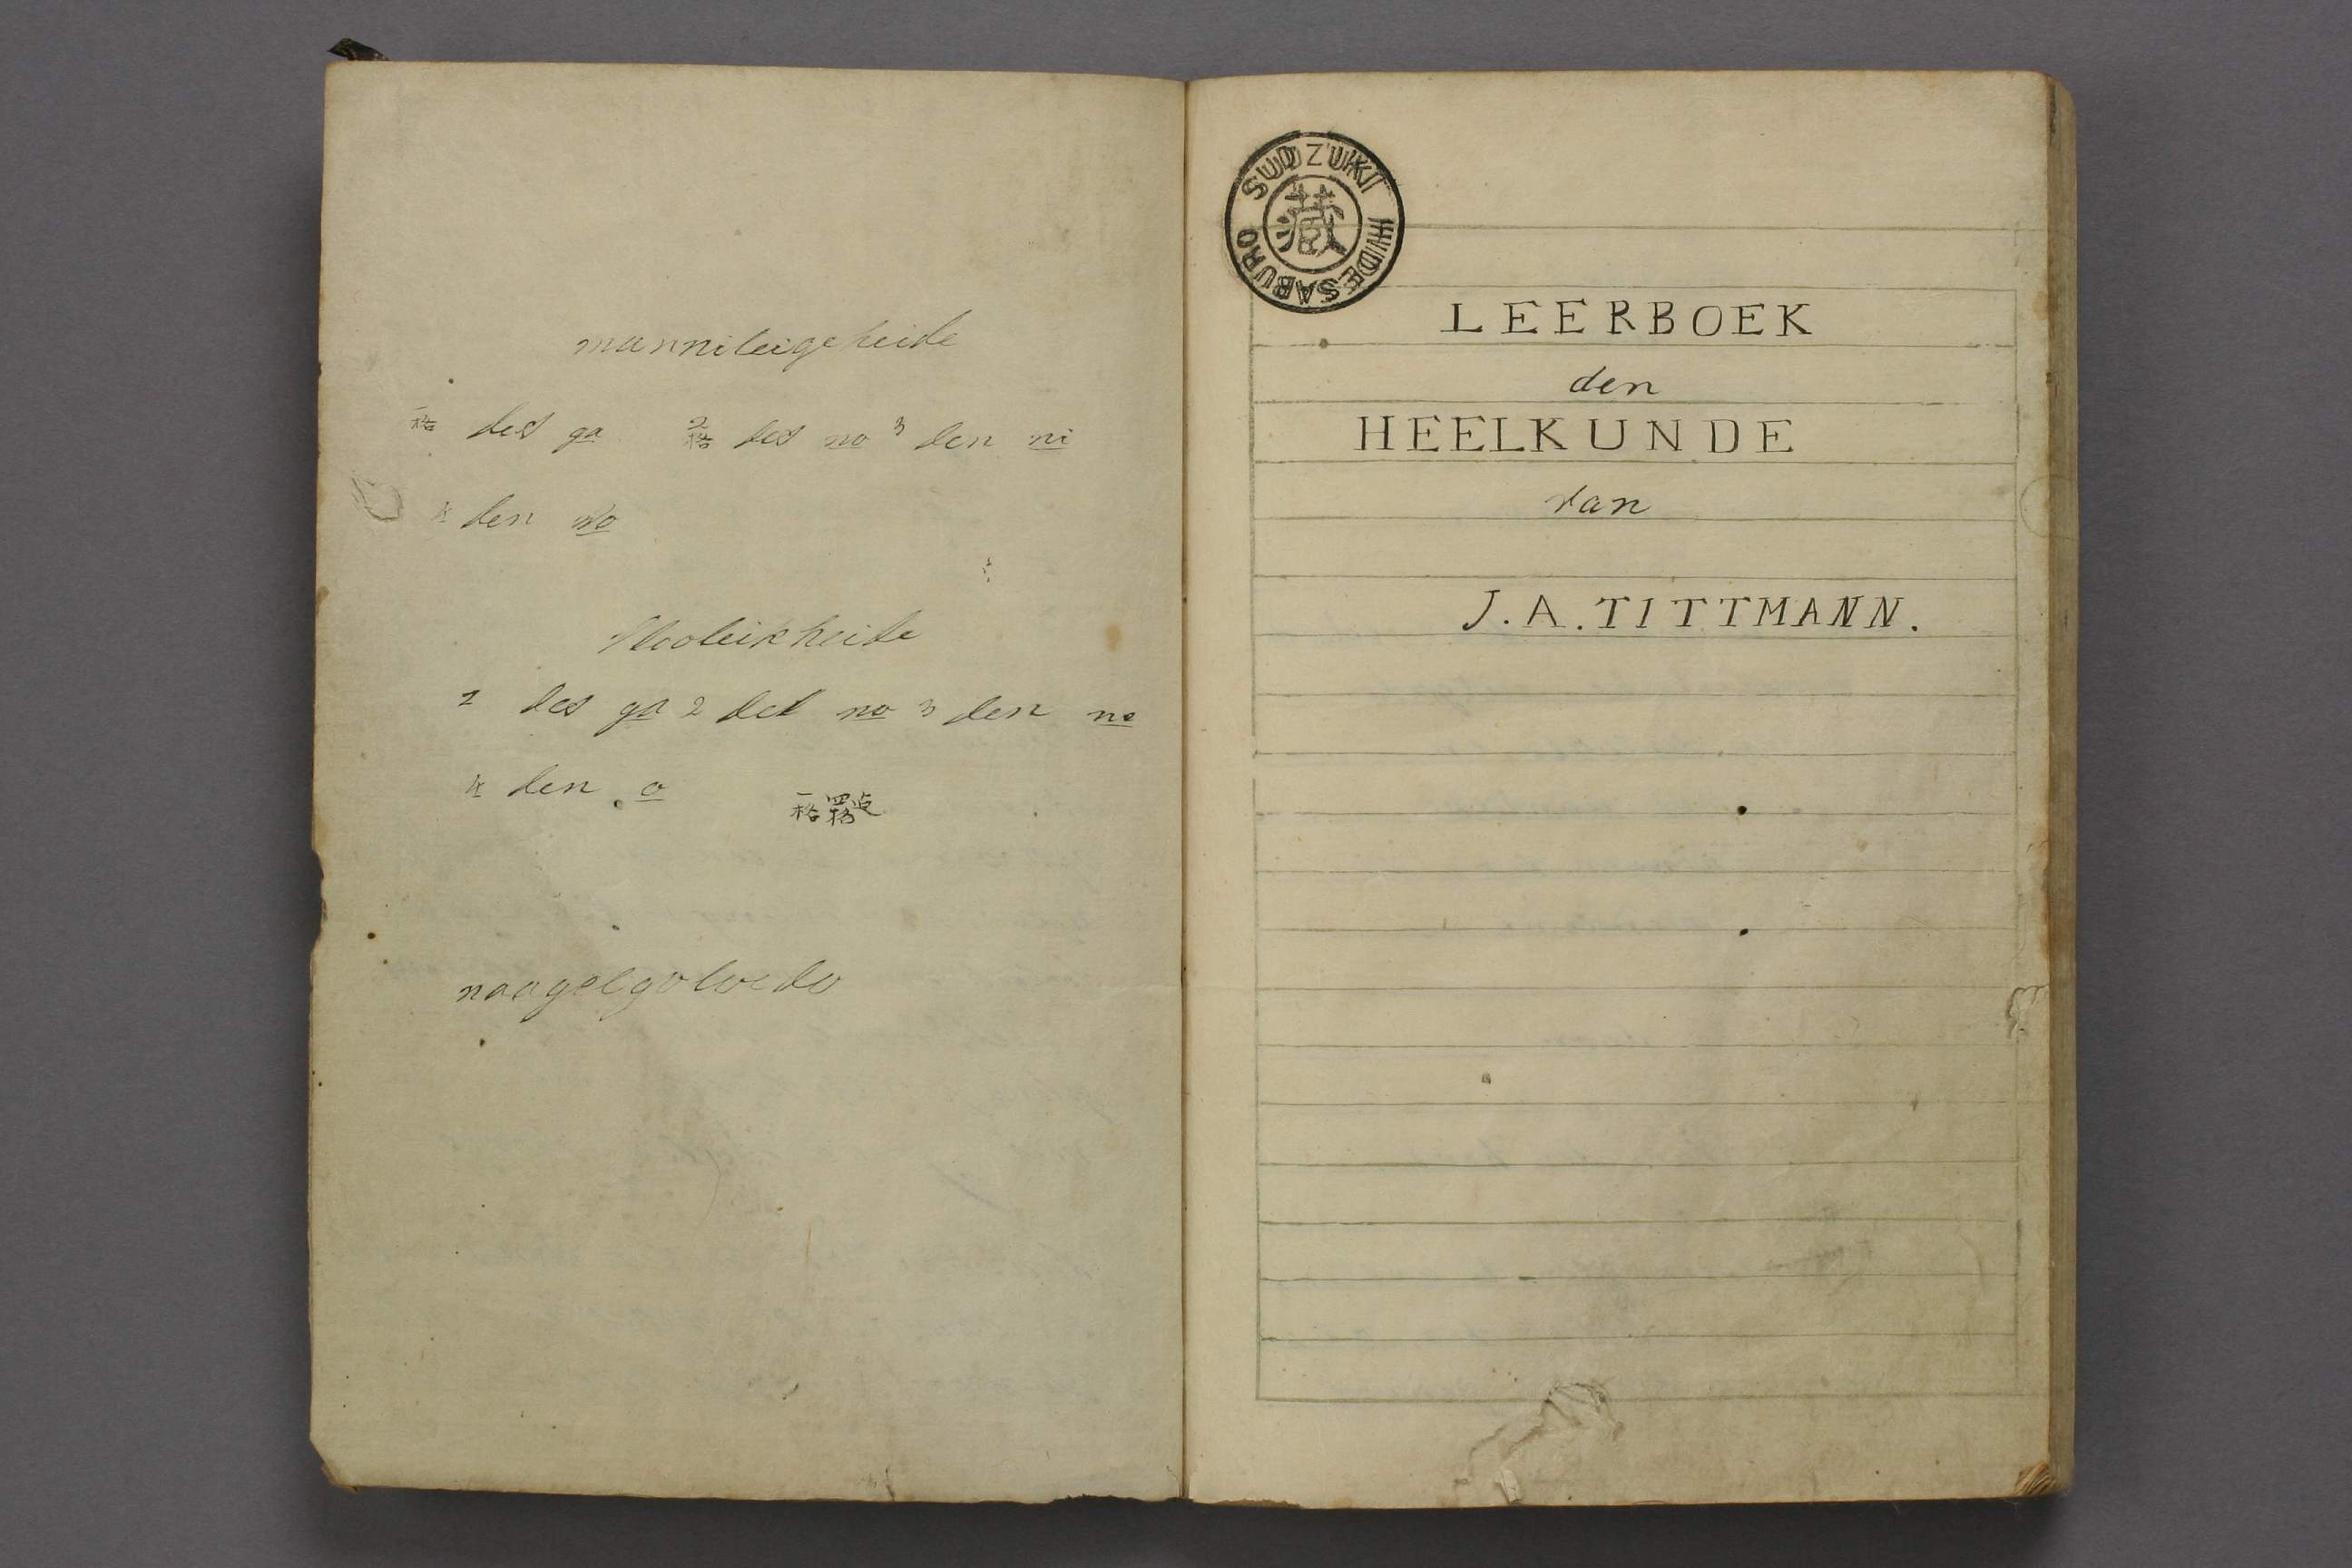 mannileigeheide
一格 des ga 2格 des no 3 den ni
4 den wo
Vlooleikheide
1 des ga 2 des no 3 den no
4 den o 一格
naagelgolvedo
SUDZUKI HIDESABURO
藏
LEERBOEK
den
HEELKUNDE
van
J. A. TITTMANN.